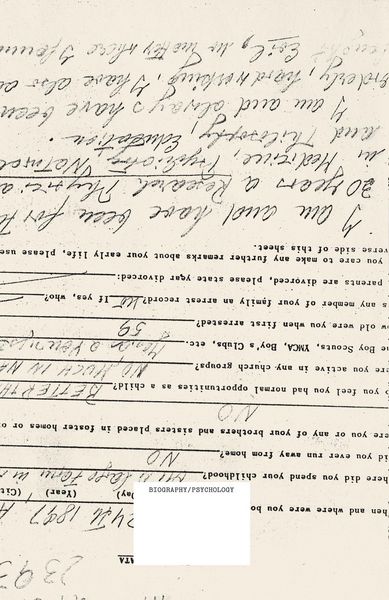 BIOGRAPHY/PSYCHOLOGY
ATA
hen and where were you bo 1897
Day) (Year) (Cit
here did you spend your childhood? large farm in
id you ever run away from home? NO
ere you or any of your brothers and sisters placed in foster homes or o
NO
o you feel you had normal opportunities as a child? BETTER TH
ere you active in any church groups? NO MUCH IN NA
he Boy Scouts, YMCA, Boy's Clubs, etc.
ow old were you when first arrested? 59
as any member of your family an arrest record? No If yes, who?
parents are divorced, please state year divorced:
you care to make any further remarks about your early life, please use
verse side of this sheet.
I am and have been for th
20 years a Research Physicia
in Medicine, Psychiatric, Nature
and Philosophy, Education.
I am and always have been
orderly, hard working. I have also a
Evil, no matter where I foun